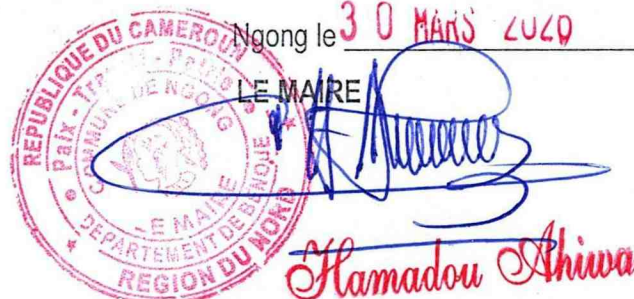 Ngong le 30 MARS 2020
LE MAIRE
REPUBLIQUE DU CAMEROUN
Paix - Travail - Patrie
COMMUNE DE NGONG
LE MAIRE
DEPARTEMENT DE BENOUE
REGION DU NORD
Hamadou Ahiwa